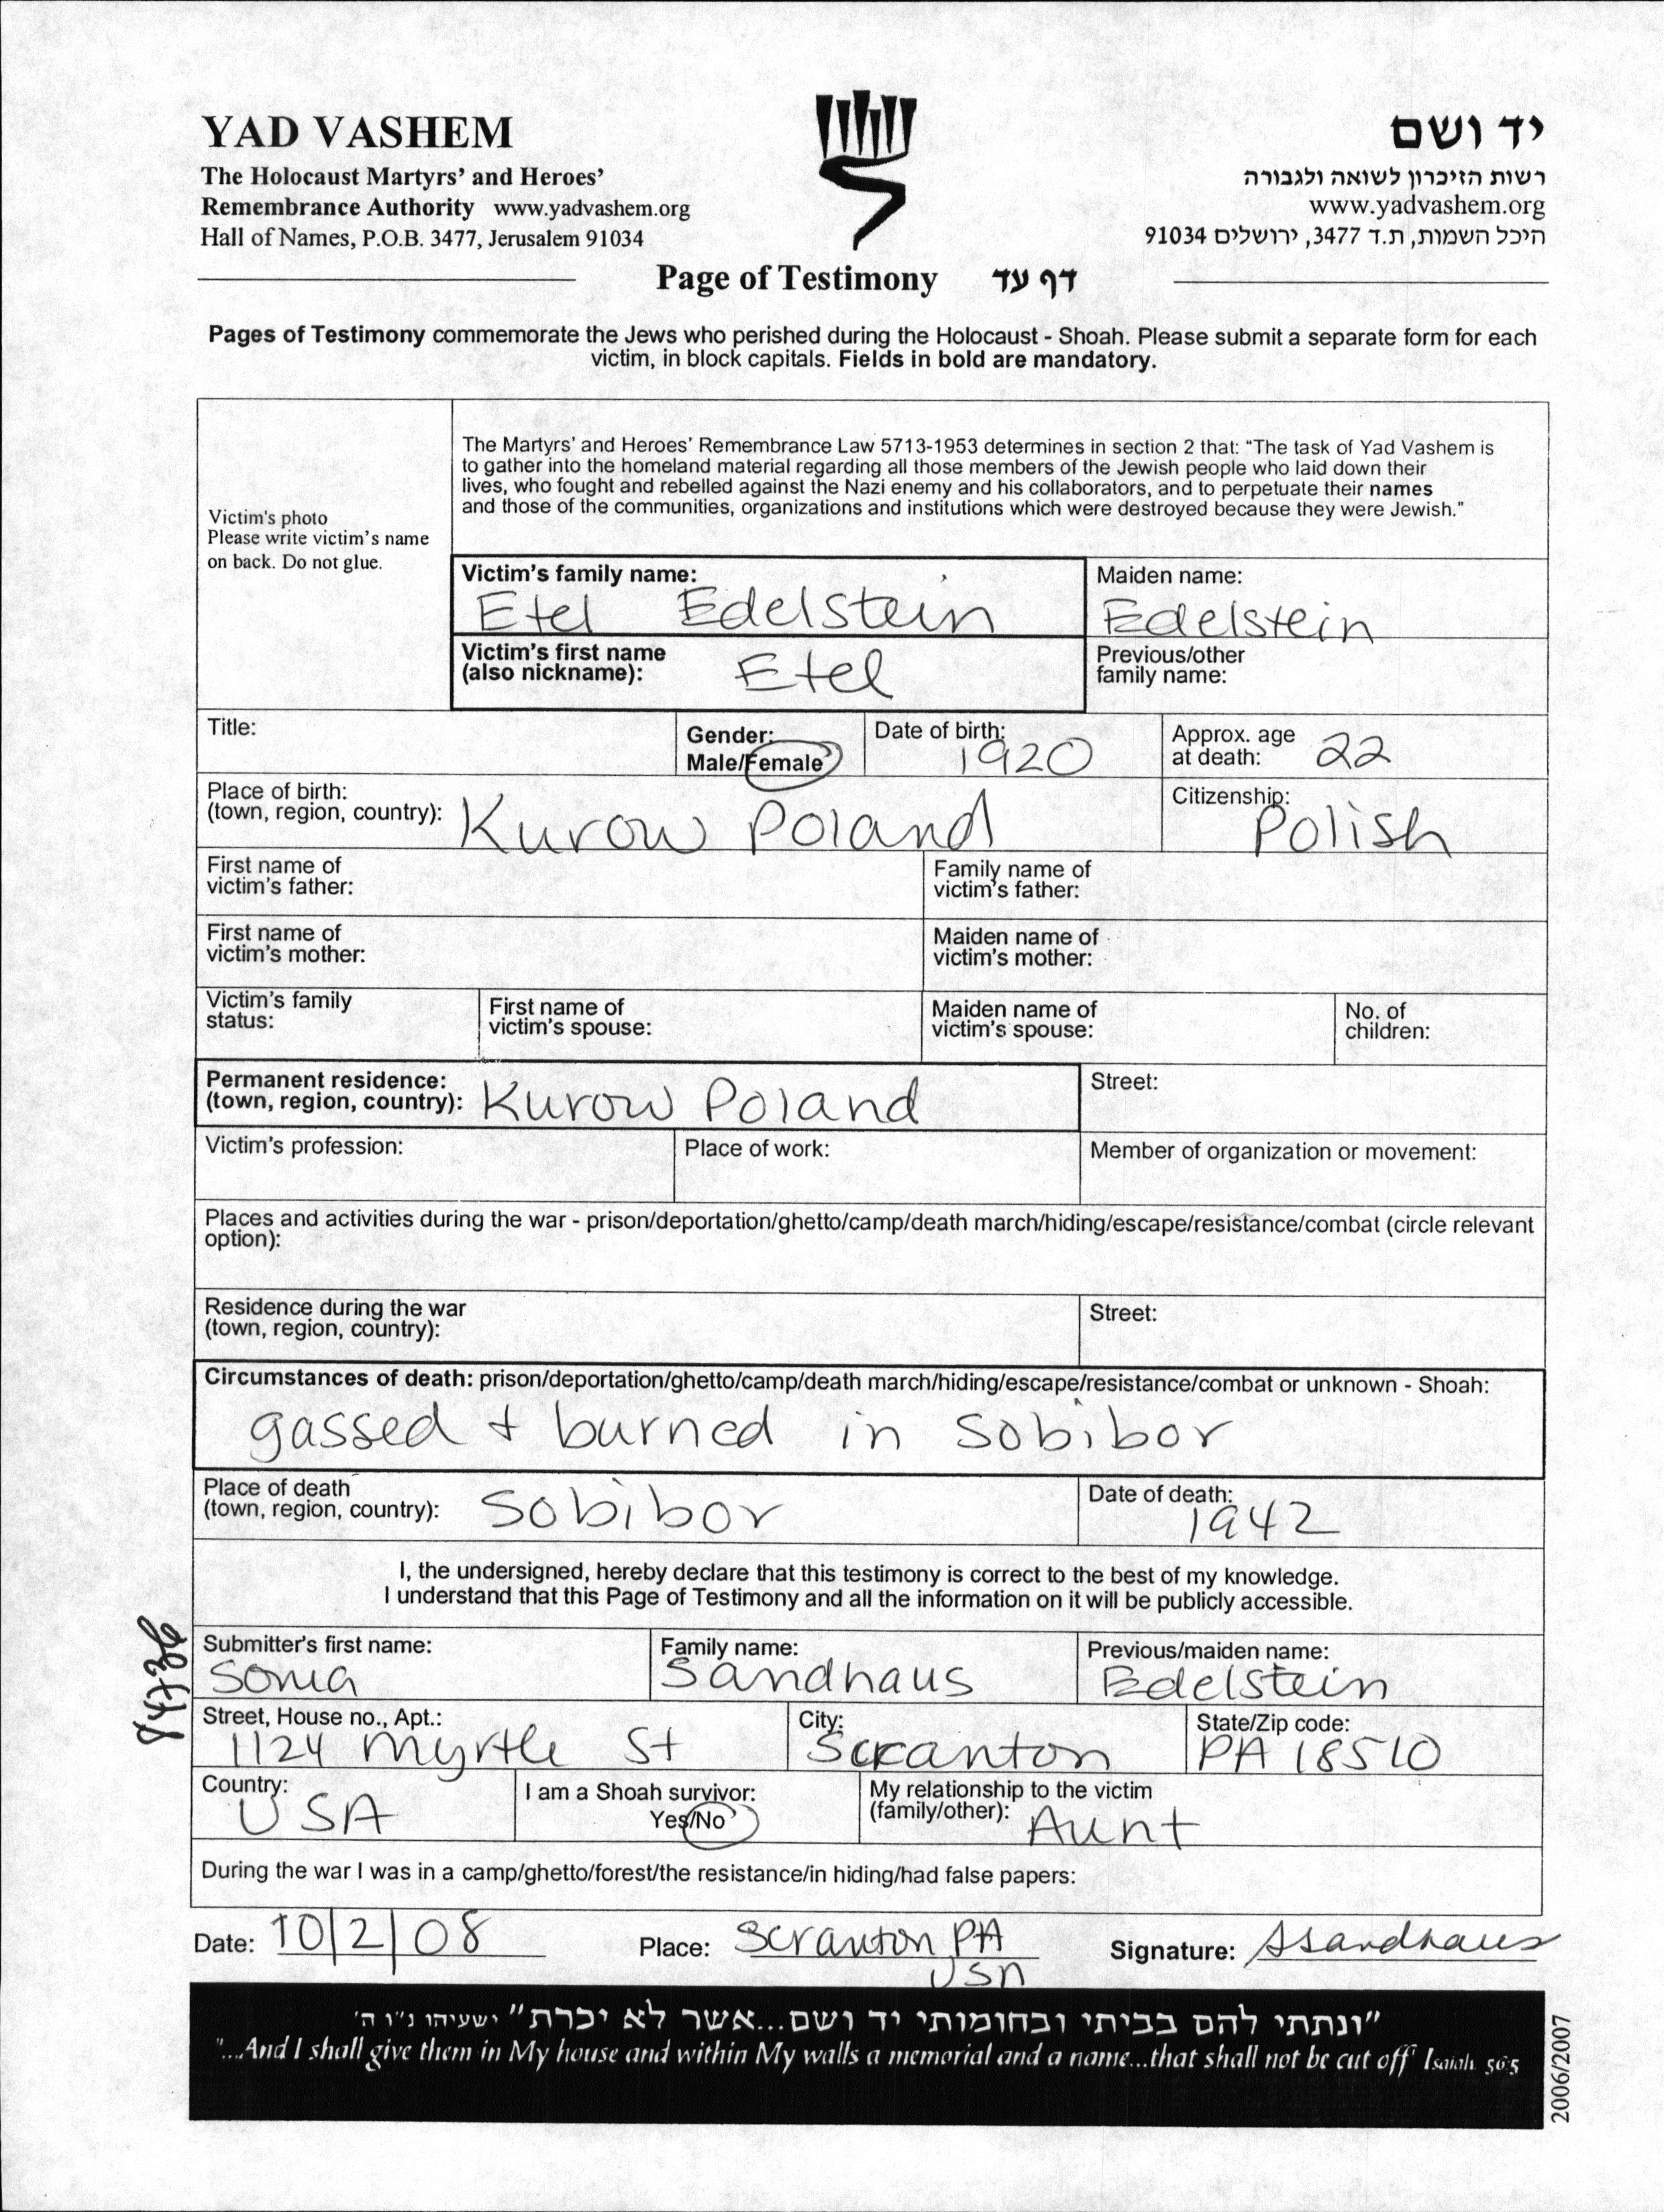 YAD VASHEM
The Holocaust Martyrs' and Heroes'
Remembrance Authority www.yadvashem.org
Hall of Names, P.O.B. 3477, Jerusalem 91034
יד ושם
רשות הזיכרון לשואה ולגבורה
www.yadvashem.org
היכל השמות, ת.ד 3477, ירושלים 91034
Page of Testimony דף עד
Pages of Testimony commemorate the Jews who perished during the Holocaust - Shoah. Please submit a separate form for each
victim, in block capitals. Fields in bold are mandatory.
Victim's photo
Please write victim's name
on back. Do not glue.
The Martyrs' and Heroes' Remembrance Law 5713-1953 determines in section 2 that: "The task of Yad Vashem is
to gather into the homeland material regarding all those members of the Jewish people who laid down their
lives, who fought and rebelled against the Nazi enemy and his collaborators, and to perpetuate their names
and those of the communities, organizations and institutions which were destroyed because they were Jewish."
Victim's family name:
Etel Edelstein
Maiden name:
Edelstein
Victim's first name
(also nickname): Etel
Previous/other
family name:
Title:
Gender:
Male/Female
Date of birth:
1920
Approx. age
at death: 22
Place of birth:
(town, region, country): Kurow Poland
Citizenship:
Polish
First name of
victim's father:
Family name of
victim's father:
First name of
victim's mother:
Maiden name of
victim's mother:
Victim's family
status:
First name of
victim's spouse:
Maiden name of
victim's spouse:
No. of
children:
Permanent residence:
(town, region, country): Kurow Poland
Street:
Victim's profession:
Place of work:
Member of organization or movement:
Places and activities during the war - prison/deportation/ghetto/camp/death march/hiding/escape/resistance/combat (circle relevant
option):
Residence during the war
(town, region, country):
Street:
Circumstances of death: prison/deportation/ghetto/camp/death march/hiding/escape/resistance/combat or unknown - Shoah:
gassed + burned in Sobibor
Place of death
(town, region, country): Sobibor
Date of death:
1942
I, the undersigned, hereby declare that this testimony is correct to the best of my knowledge.
I understand that this Page of Testimony and all the information on it will be publicly accessible.
Submitter's first name:
Sonia
Family name:
Sandhaus
Previous/maiden name:
Edelstein
Street, House no., Apt.:
1124 Myrtle St
City:
Scranton
State/Zip code:
PA 18510
Country:
USA
I am a Shoah survivor:
Yes/No
My relationship to the victim
(family/other): Aunt
During the war I was in a camp/ghetto/forest/the resistance/in hiding/had false papers:
Date: 10/2/08
Place: Scranton PA
USA
Signature: SSandhaus
"ונתתי להם בביתי ובחומותי יד ושם...אשר לא יכרת" ישעיהו נ"ו ה'
"...And I shall give them in My house and within My walls a memorial and a name...that shall not be cut off" Isaiah 56:5
2006/2007